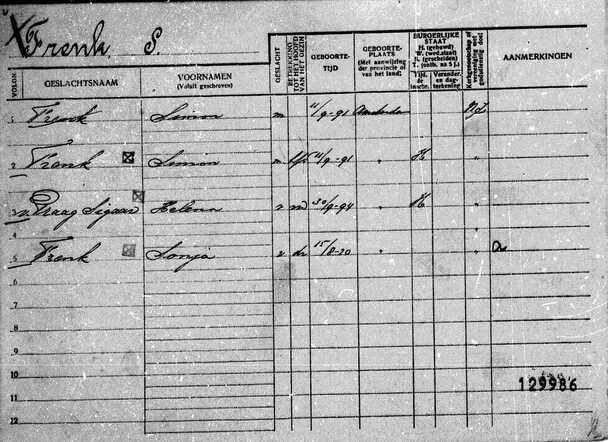 Frenk S.
VOLGN
GESLACHTSNAAM
VOORNAMEN
(Voluit geschreven)
GESLACHT
BETREKKING TOT HET HOOFD VAN HET GEZIN
GEBOORTE-
TIJD
GEBOORTE-
PLAATS
(Met aanwijzing
der provincie of
van het land)
BURGERLIJKE
STAAT
H. (gehuwd)
W. (wed.staat)
S. (gescheiden)
(onth. na s j.)
Tijd.
de
inschr.
Verander.
en dag-
teekening
Kerkgenootschap
AANMERKINGEN
1 Frenk Simon m 11/9-91 Amsterdam N I
2 Frenk Simon m 11/9-91 " H "
3 v. Praag Sigaar Helena v 30/9-94 " H "
4
5 Frenk Sonja v dr 15/8-20 " "
6
7
8
9
10
11
12
129986